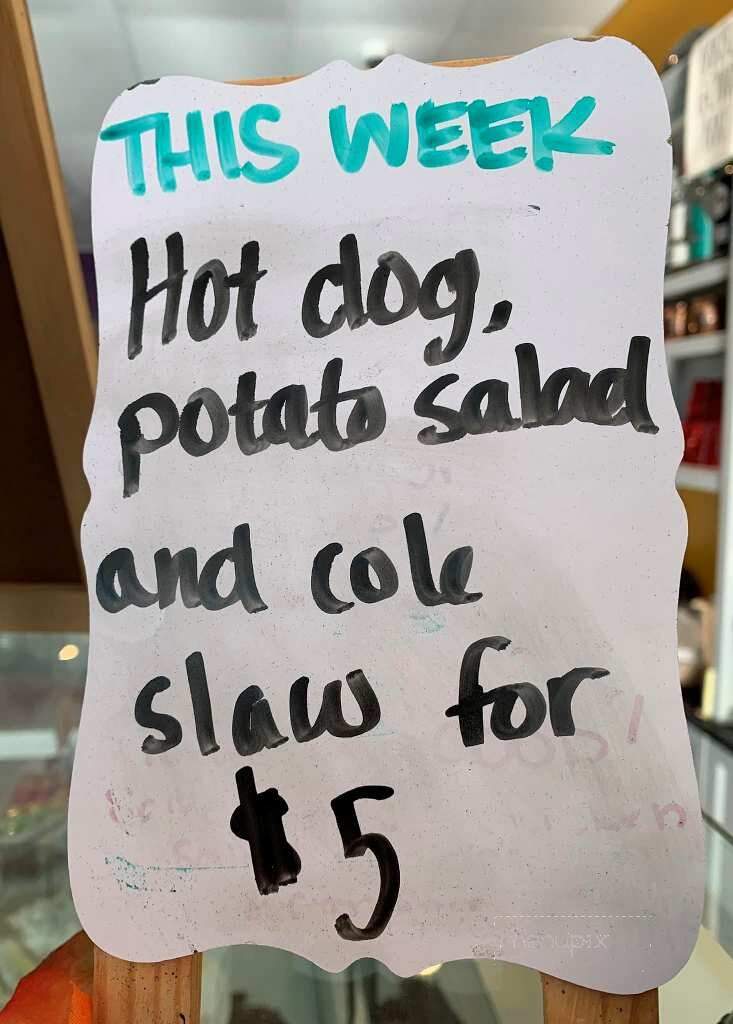 THIS WEEK
Hot dog,
potato salad
and cole
slaw for
$5
menupix